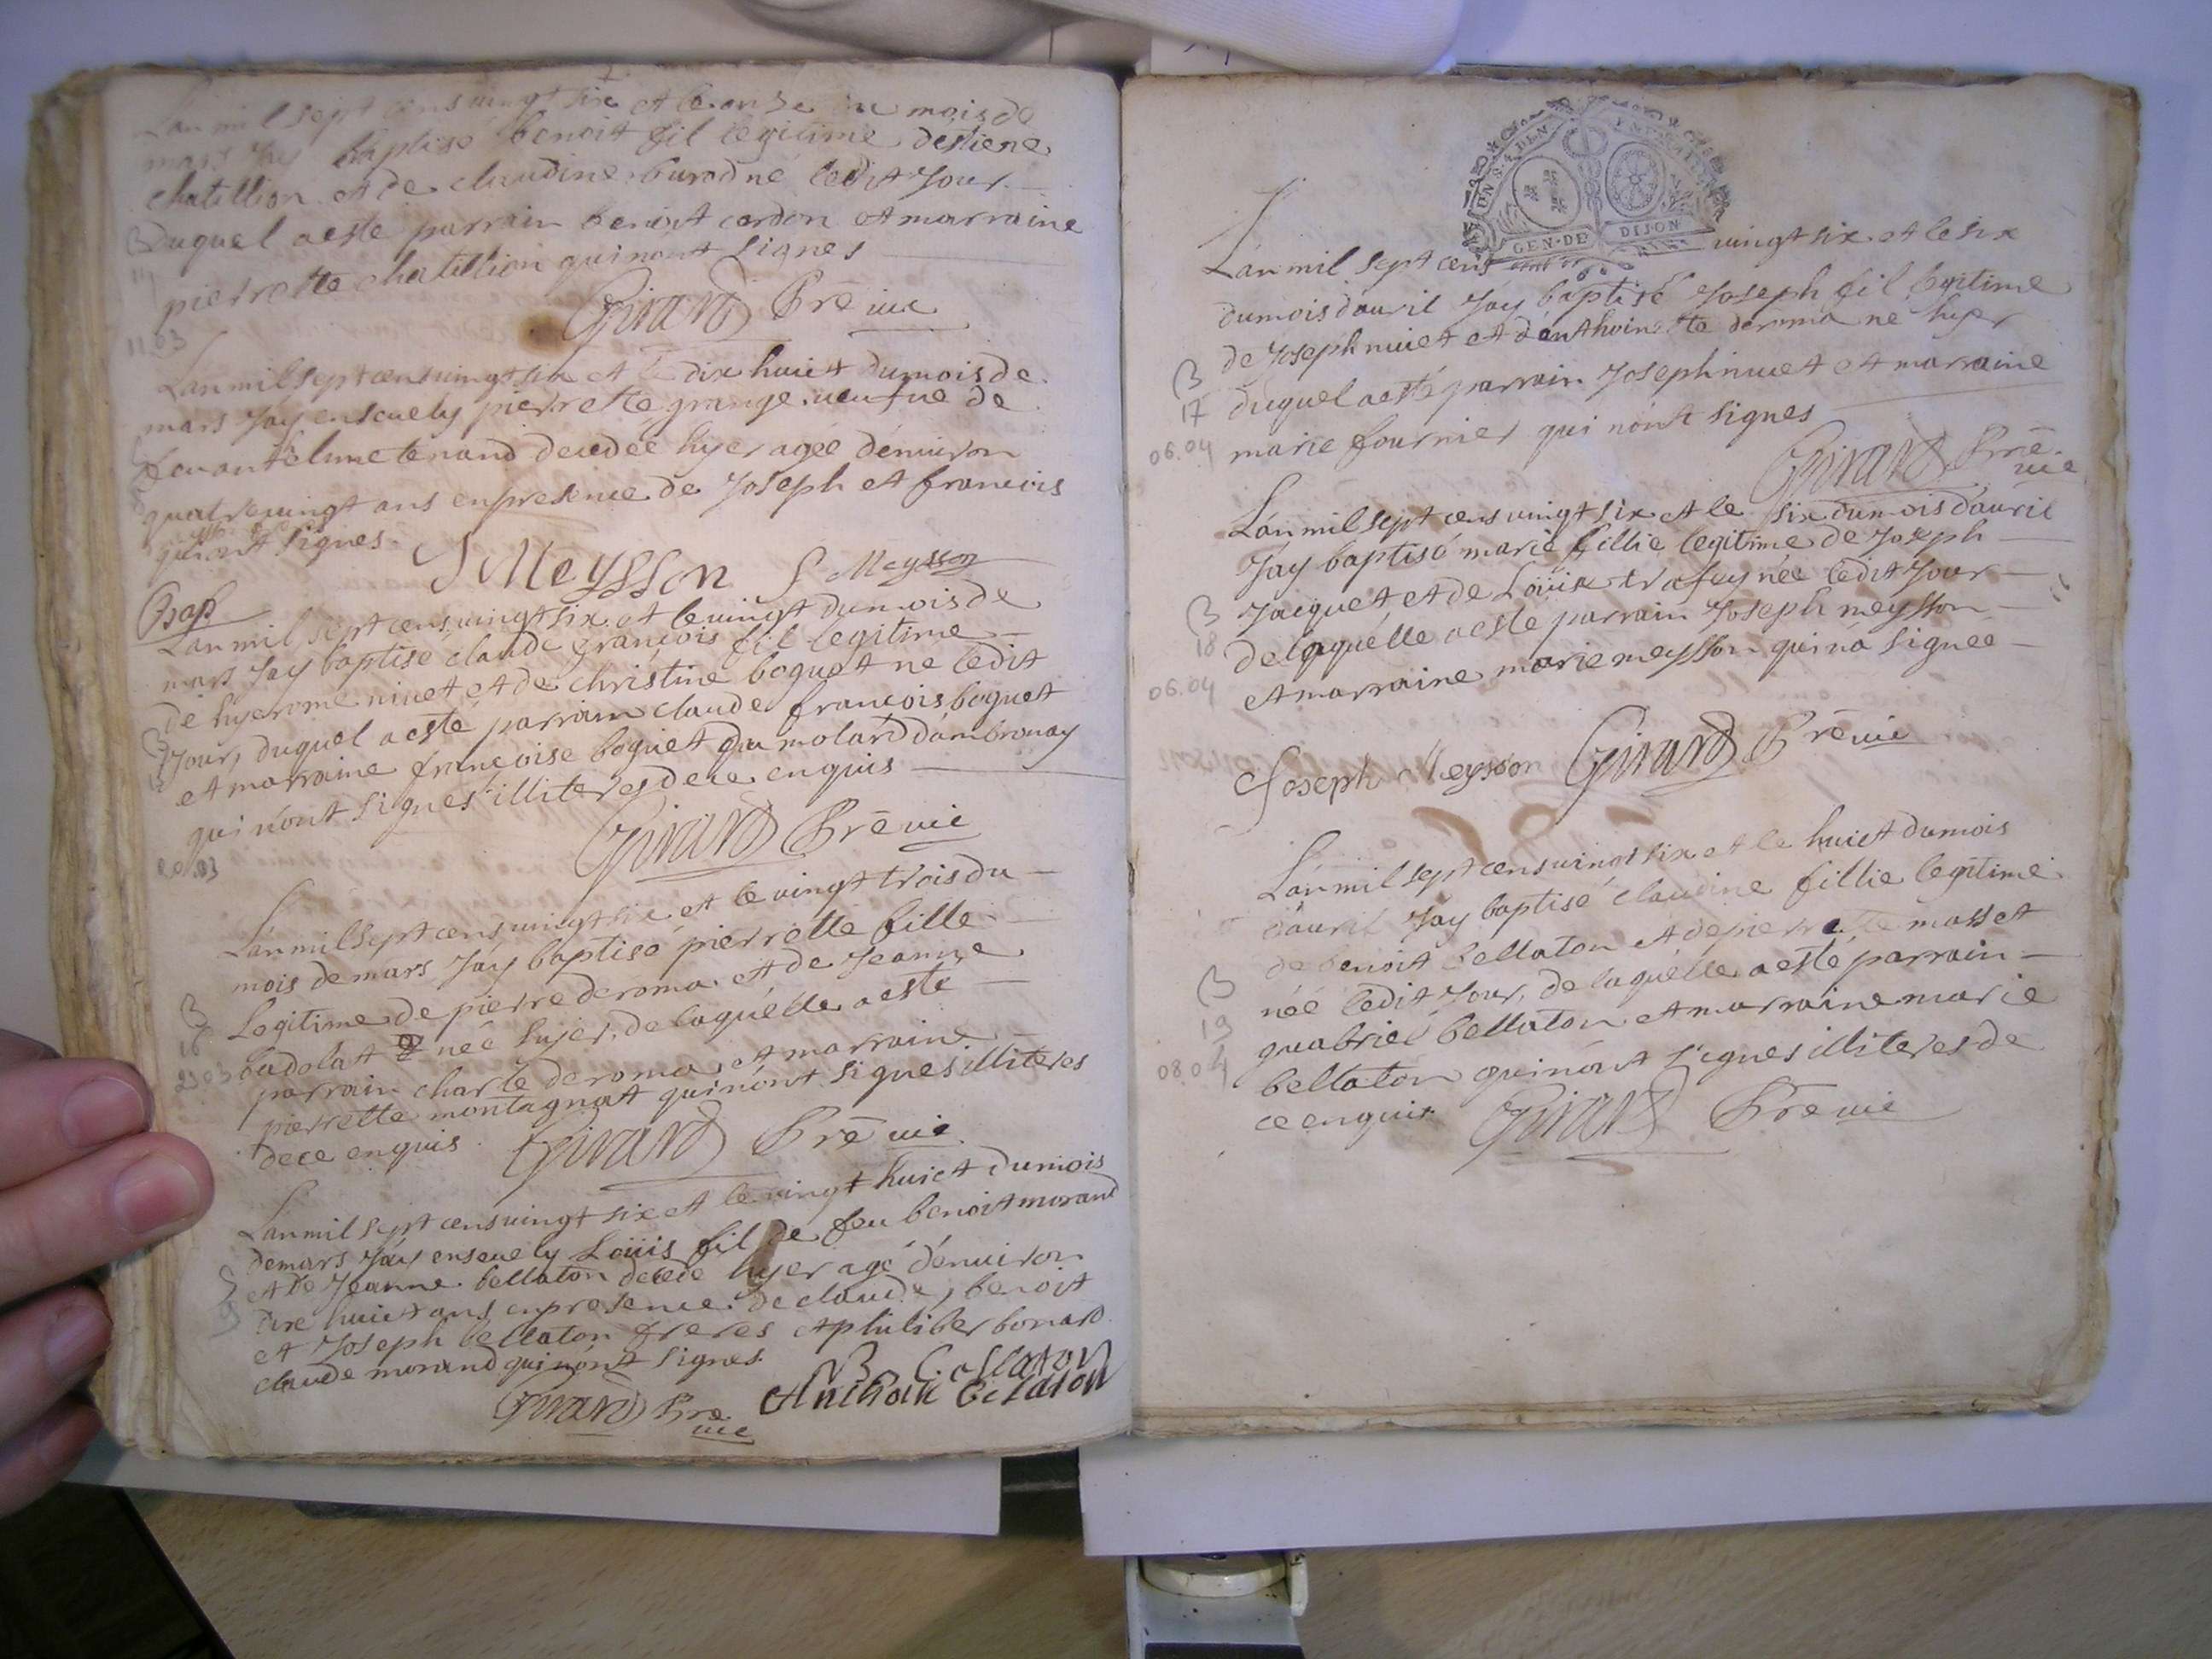 Lan mil sept cens vingt six et le onze du mois de
mars Jay baptisé benoit fil legitime destiene
chatillion et de claudine burod né ledit Jour
B duquel a esté parrain benoit cordon et marraine
pierrette chatillion qui nont signes
Girard Prē vic
11.03
Lan mil sept cens vingt six et le dix huict du mois de
mars Jay enseuely pierrette grange veufue de
tenand decedeé hyer ageé d'enuiron
quatre vingt ans en presence de Joseph et francois
qui ont signes
J Meysson f Meysson
Bap
Lan mil sept cens vingt six et le vingt du mois de
mars Jay baptisé claude françois fil legitime
de hyerome niuet et de christine boguet né ledit
Jour, duquel a esté parrain claude françois boguet
et marraine françoise boguet du molard d'ambronay
qui n'ont signes illiteres de ce enquis
Girard Prē vic
20.03
Lan mil sept cens vingt six et le vingt trois du
mois de mars Jay baptisé pierrette fille
B Legitime de pierre deroma et de Jeanne
16 badolat neé hyer, de laquélle a esté
23.03 parrain charle deroma et marraine
pierrette montagnat qui nónt signes illiteres
de ce enquis Girard Prē vic
Lan mil sept cens vingt six et le vingt huict du mois
de mars Jay enseuely Loüis fil de feu benoit morand
et de Jeanne bellaton decede hyer agé d'enuiron
dix huict ans en presence de claude, benoit
et Joseph bellaton freres et philiber bonard
claude morand qui nónt signes
B bellaton
Anthoine bellaton
Girard Prē
vic
DIJON
GEN·DE
Lán mil sept cens vingt six et le six
du mois d'auril Jay baptisé Joseph fil legitime
B de Joseph niuet et d'anthoinette deroma né hyer
17 duquel a esté parrain Joseph niuet et marraine
06.04 marie fournier qui nónt signes
Girard Prē
vic
Lán mil sept cens vingt six et le six du mois d'auril
Jay baptisé marie fillie legitime de Joseph
B Jacquet et de Loüise trafay neé ledit Jour
18 de laquélle a esté parrain Joseph meysson
06.04 et marraine marie meysson qui ná signeé
Joseph Meysson Girard Prē vic
Lán mil sept cens vingt six et le huict du mois
d'auril Jay baptisé claudine fillie legitime
de benoit bellaton et de pierrette masset
B neé ledit Jour, de laquélle a esté parrain
19 guabriel bellaton et marraine marie
08.04 bellaton qui nónt signes illiteres de
ce enquis Girard Prē vic